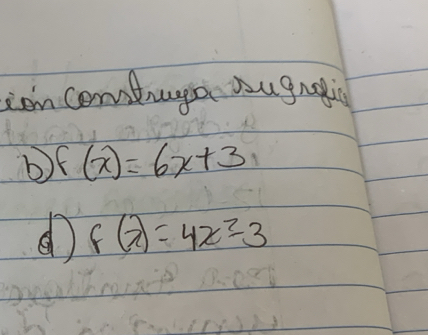 ión construya su grafica
b) f(x) = 6x + 3
d) f(x) = 4x² - 3